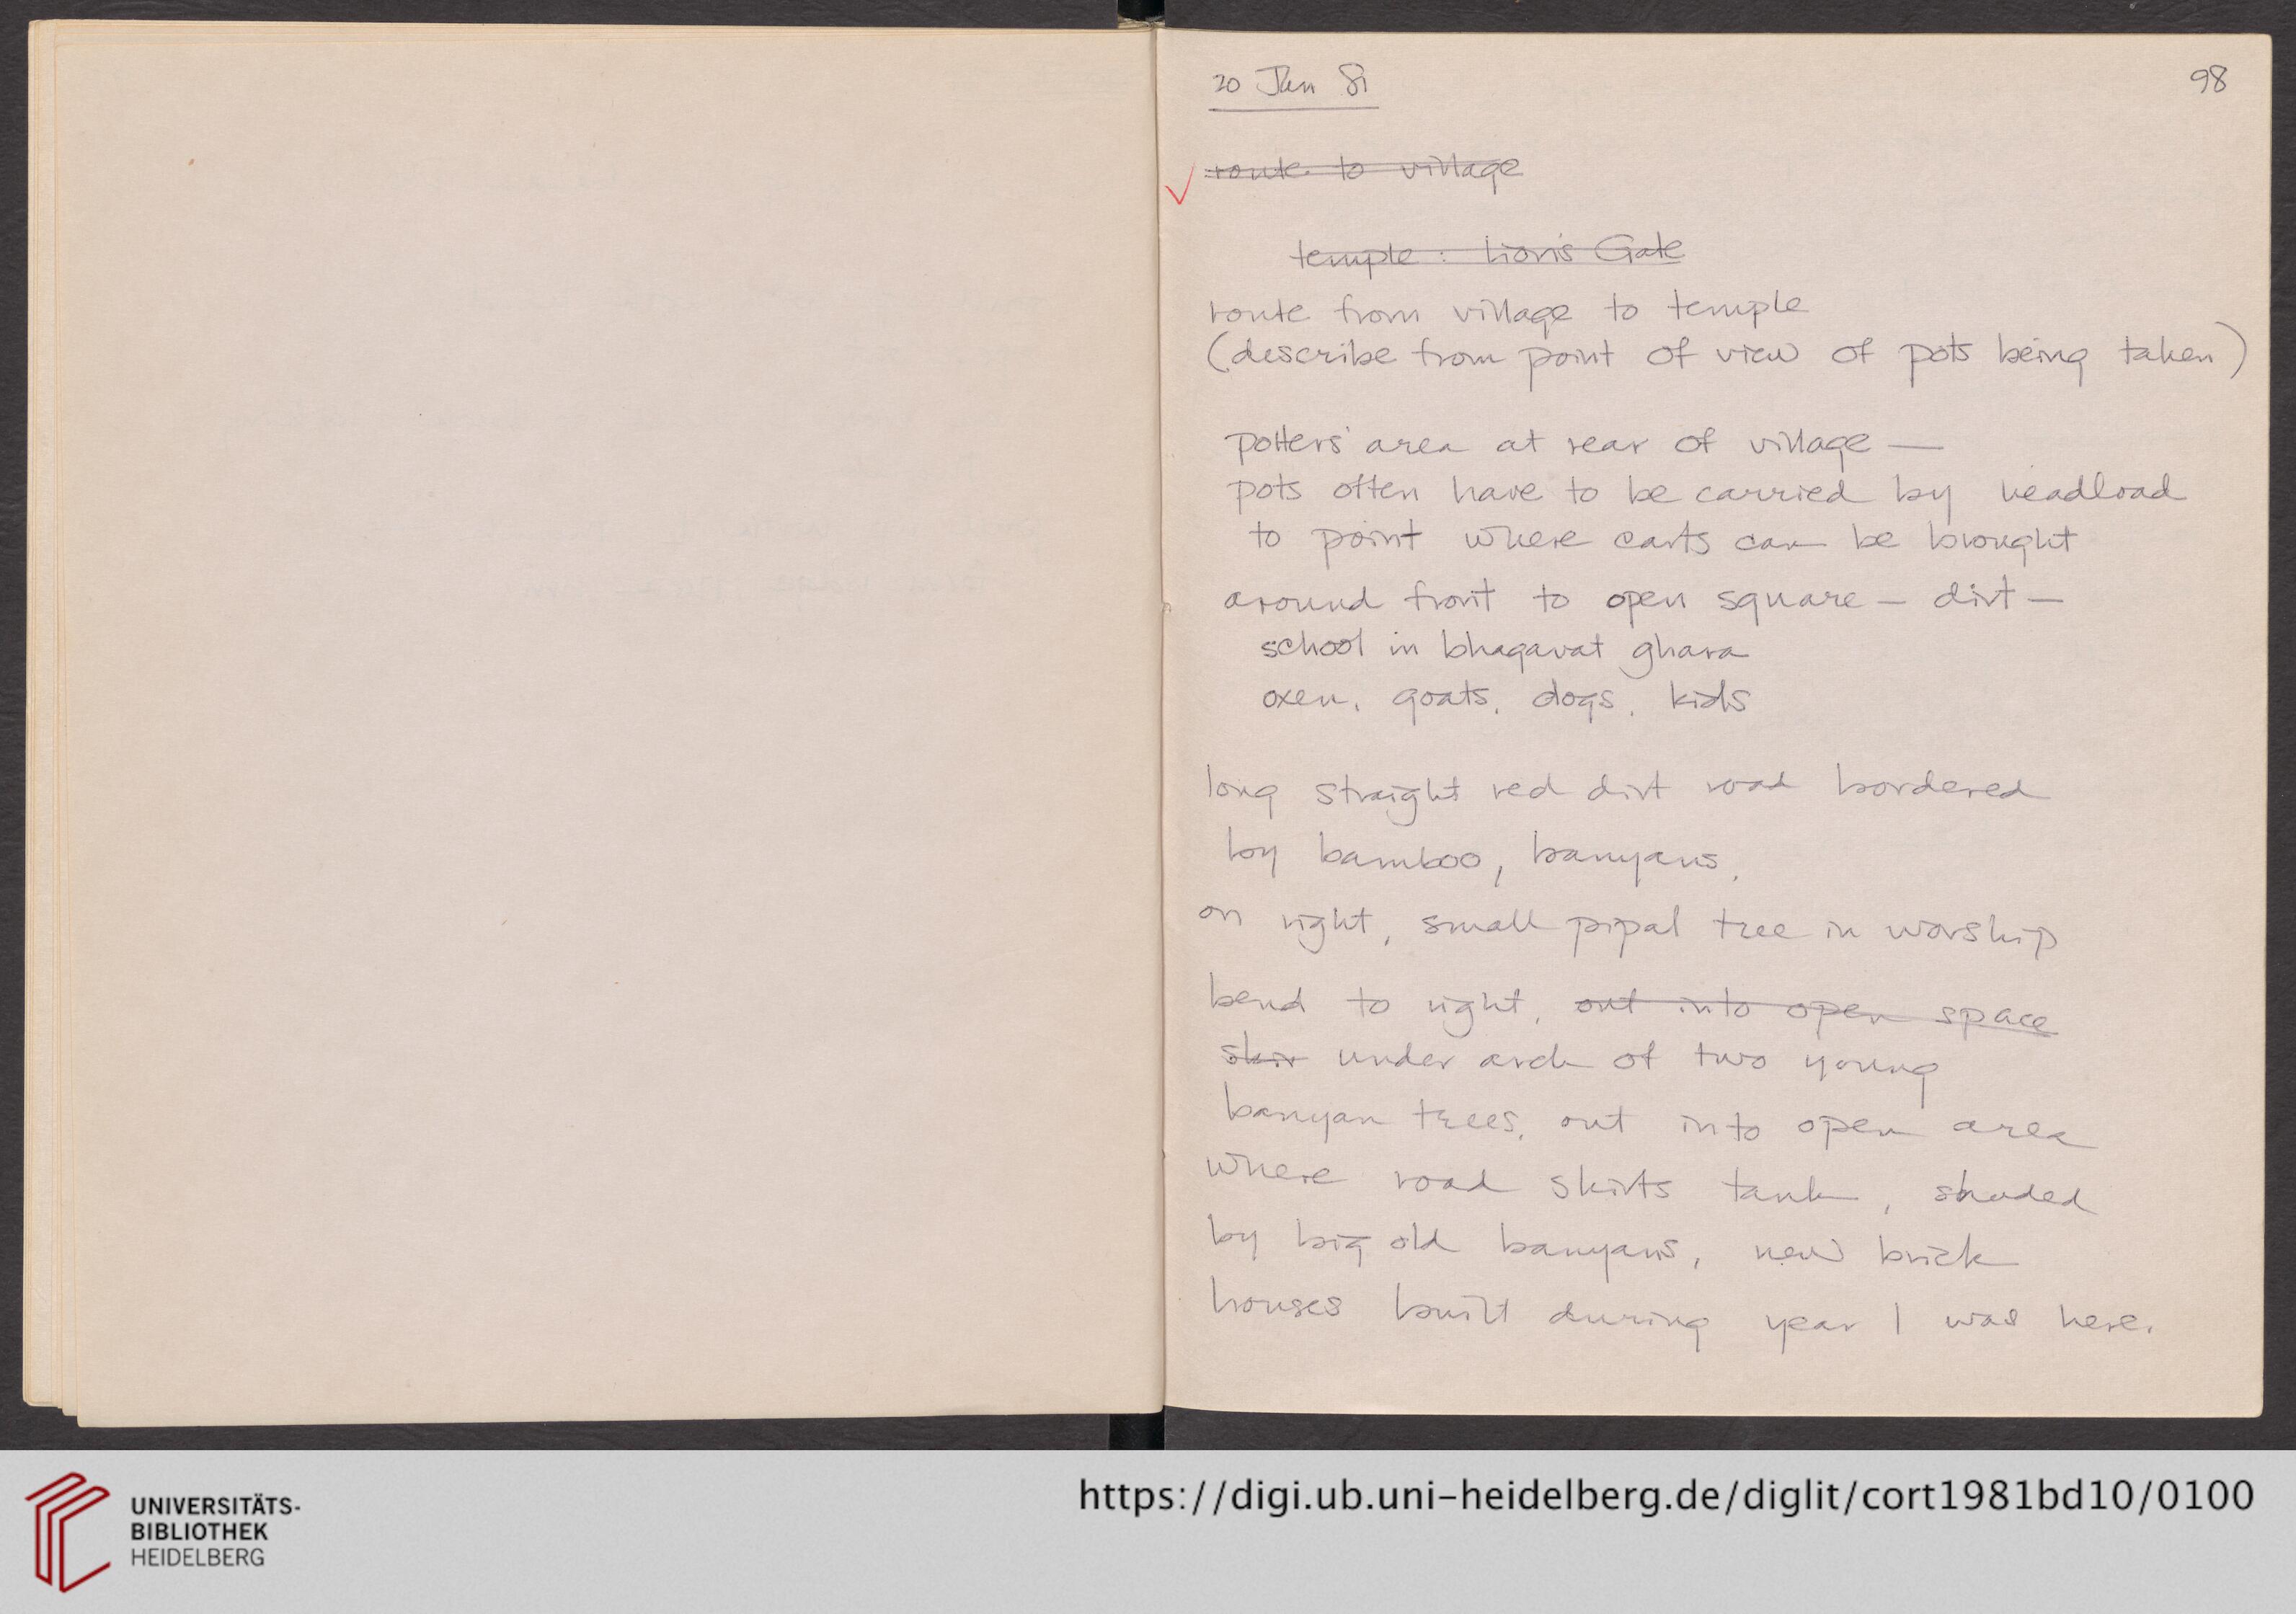 20 Jan 81
98
route to village
temple : Lion's Gate
route from village to temple
(describe from point of view of pots being taken)
potters' area at rear of village —
pots often have to be carried by headload
to point where carts can be brought
around front to open square — dirt —
school in bhagavat ghara
oxen, goats, dogs, kids
long straight red dirt road bordered
by bamboo, banyans,
on right, small pipal tree in worship
bend to right, out into open space
skir under arch of two young
banyan trees, out into open area
where road skirts tank, shaded
by big old banyans, new brick
houses built during year I was here.
UNIVERSITÄTS-
BIBLIOTHEK
HEIDELBERG
https://digi.ub.uni-heidelberg.de/diglit/cort1981bd10/0100